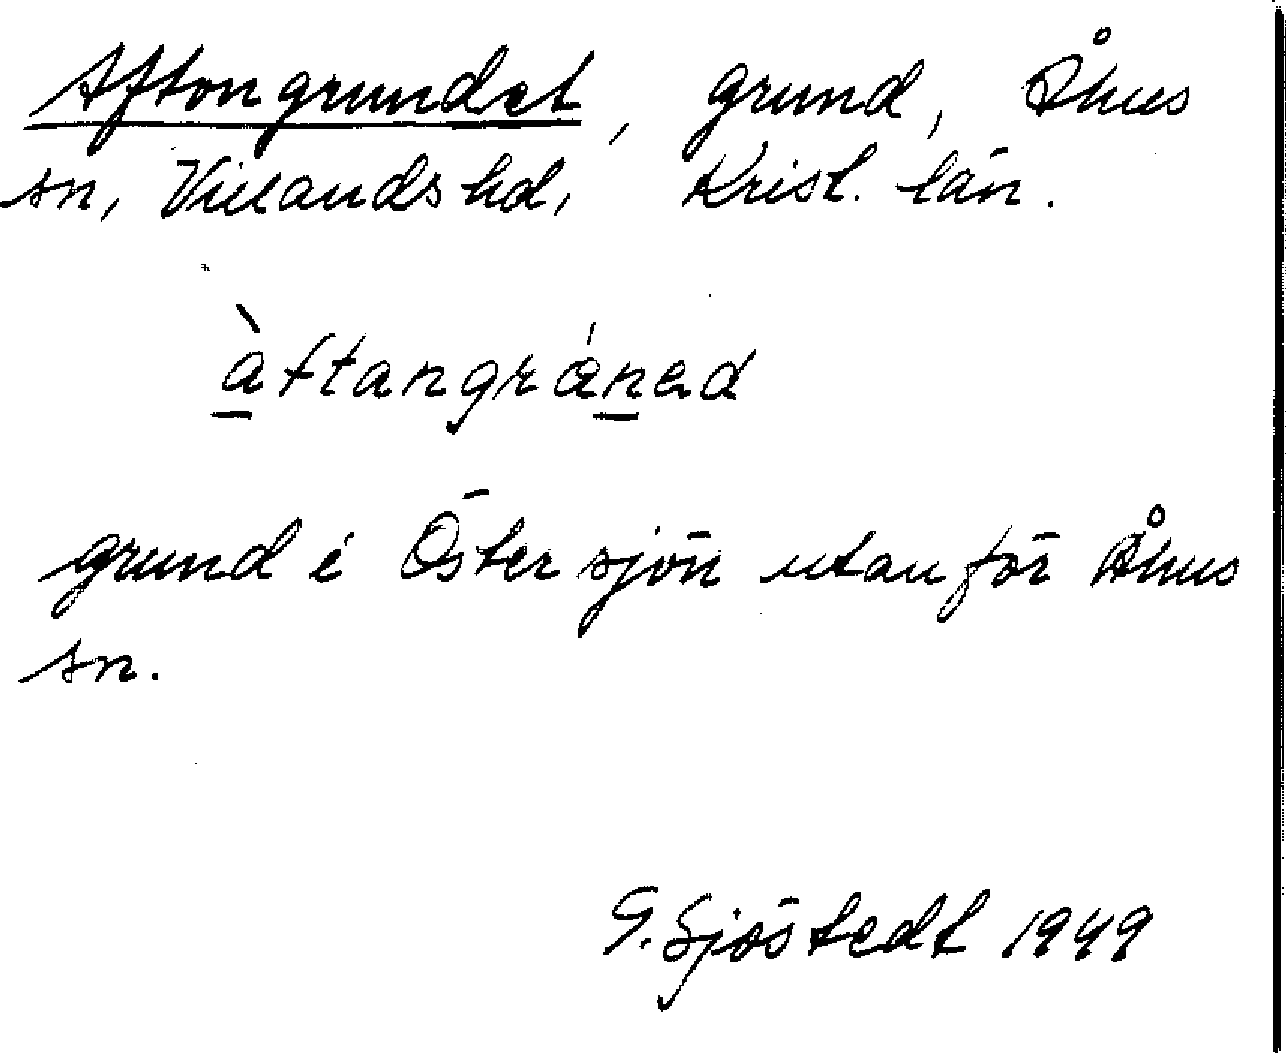 Aftongrundet, grund, Åhus
sn, Villands hd, Krist. län.
àftangrǽnad
grund i Östersjön utanför Åhus
sn.
G. Sjöstedt 1949